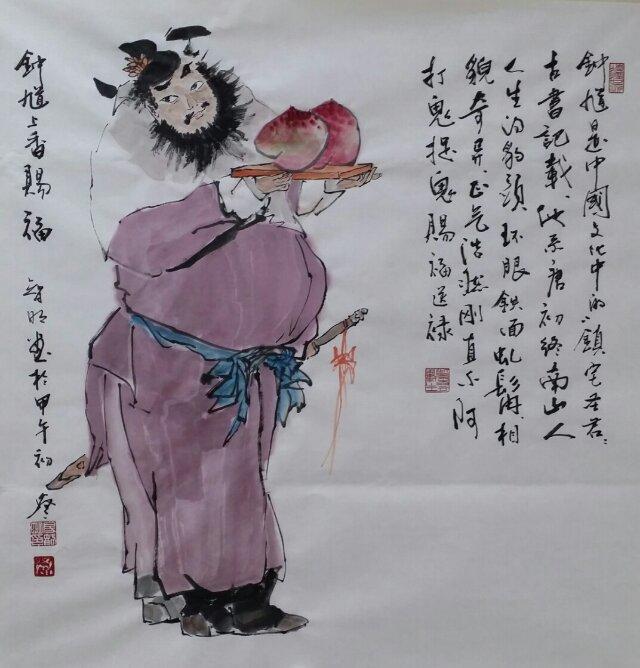 鍾馗是中國文化中的鎮宅圣君
古書記載、他系唐初終南山人
人生的豹頭环眼鉄面虬鬓、相
貌奇异、正气浩然刚直不阿
打鬼捉鬼賜福送禄
鍾馗上香賜福
智明画於甲午初